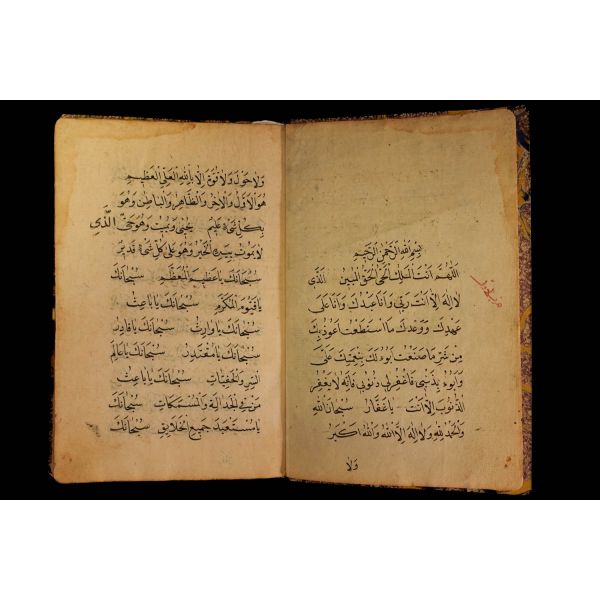 بسم الله الرحمن الرحيم
اللهم انت الملك الحي الحق المبين الذي
لا اله الا انت ربي وانا عبدك وانا على
عهدك ووعدك ما استطعت اعوذ بك
من شر ما صنعت ابوء لك بنعمتك علي
وابوء بذنبي فاغفر لي ذنوبي فانه لا يغفر
الذنوب الا انت يا غفار سبحان الله
والحمد لله ولا اله الا الله والله اكبر
ولا
ولا حول ولا قوة الا بالله العلي العظيم
هو الاول والاخر والظاهر والباطن وهو
بكل شيء عليم يحيي ويميت وهو حي الذي
لا يموت بيده الخير وهو على كل شيء قدير
سبحانك يا عظيم المعظم سبحانك
يا قيوم المكرم سبحانك يا باعث
سبحانك يا وارث سبحانك يا قادر
سبحانك يا مقتدر سبحانك يا عالم
السر والخفيات سبحانك يا باعث
من في والسمكات سبحانك
يا مستعبد جميع الخلايق سبحانك